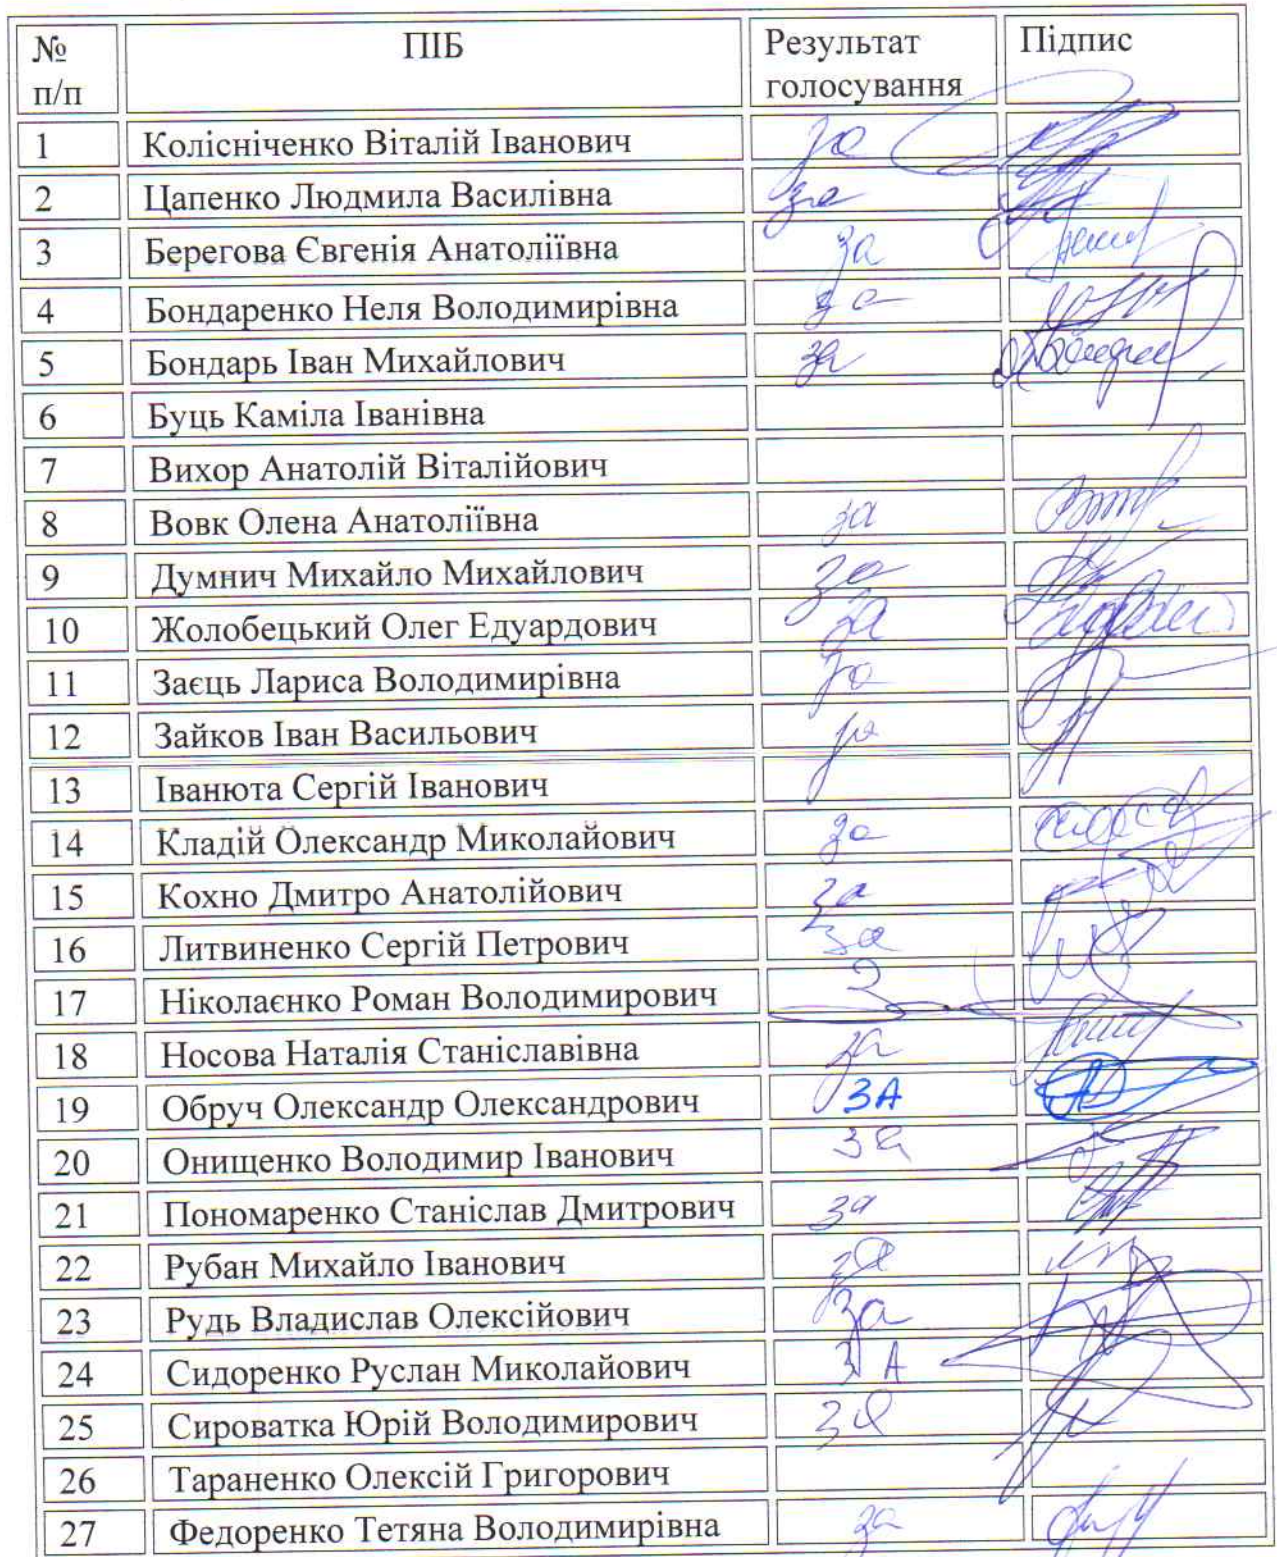 № п/п ПІБ Результат голосування Підпис
1 Колісніченко Віталій Іванович за
2 Цапенко Людмила Василівна за
3 Берегова Євгенія Анатоліївна за
4 Бондаренко Неля Володимирівна за
5 Бондарь Іван Михайлович за
6 Буць Каміла Іванівна
7 Вихор Анатолій Віталійович
8 Вовк Олена Анатоліївна за
9 Думнич Михайло Михайлович за
10 Жолобецький Олег Едуардович за
11 Заєць Лариса Володимирівна за
12 Зайков Іван Васильович за
13 Іванюта Сергій Іванович
14 Кладій Олександр Миколайович за
15 Кохно Дмитро Анатолійович за
16 Литвиненко Сергій Петрович за
17 Ніколаєнко Роман Володимирович
18 Носова Наталія Станіславівна за
19 Обруч Олександр Олександрович ЗА
20 Онищенко Володимир Іванович за
21 Пономаренко Станіслав Дмитрович за
22 Рубан Михайло Іванович за
23 Рудь Владислав Олексійович за
24 Сидоренко Руслан Миколайович ЗА
25 Сироватка Юрій Володимирович за
26 Тараненко Олексій Григорович
27 Федоренко Тетяна Володимирівна за